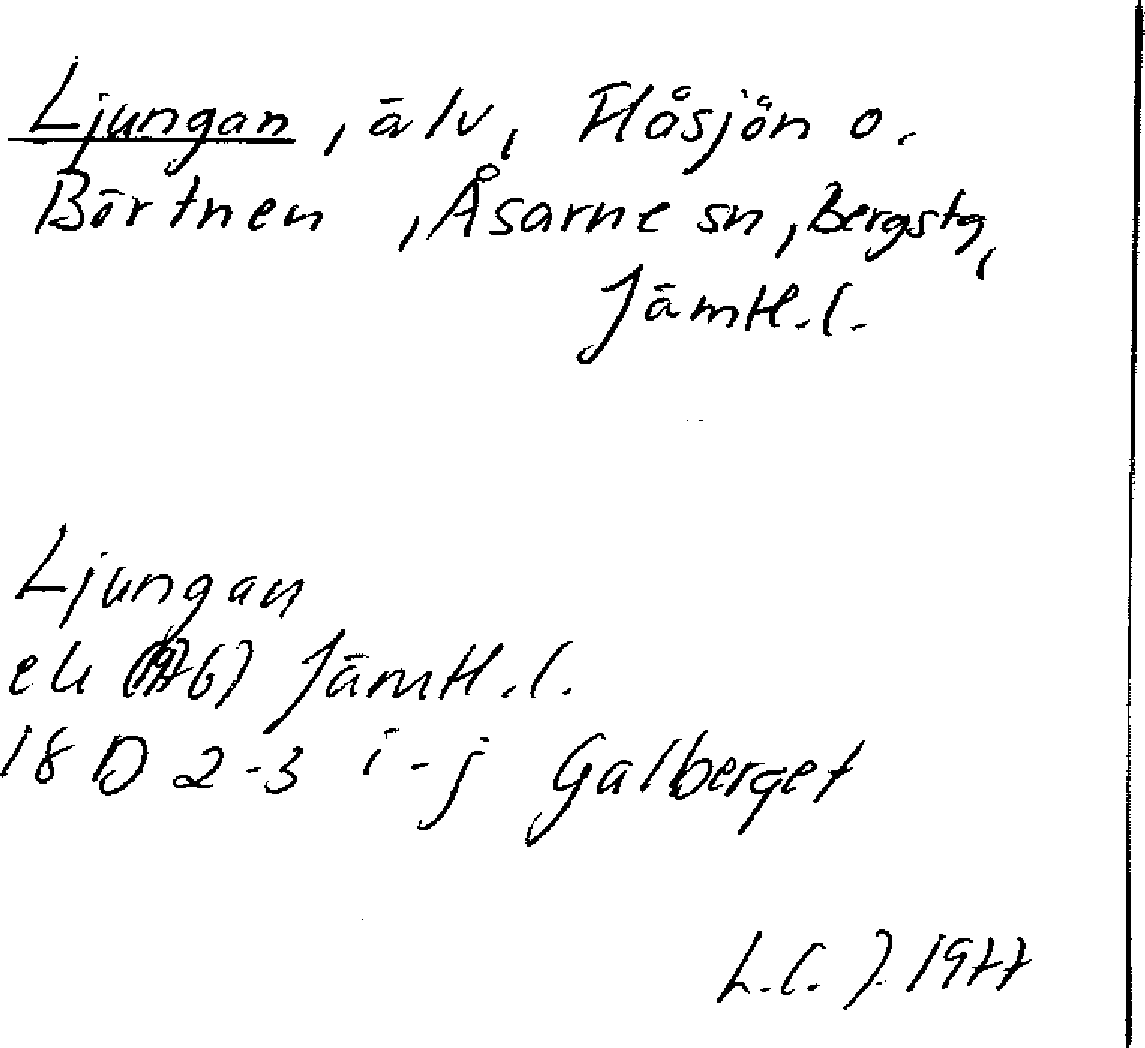 Ljungan, älv, Flåsjön o.
Börtnen, Åsarne sn, Bergstg,
Jämtl.l.
Ljungan
ek (1976) Jämtl.l.
18 D 2-3 i-j Galberget
L.C.J. 1977